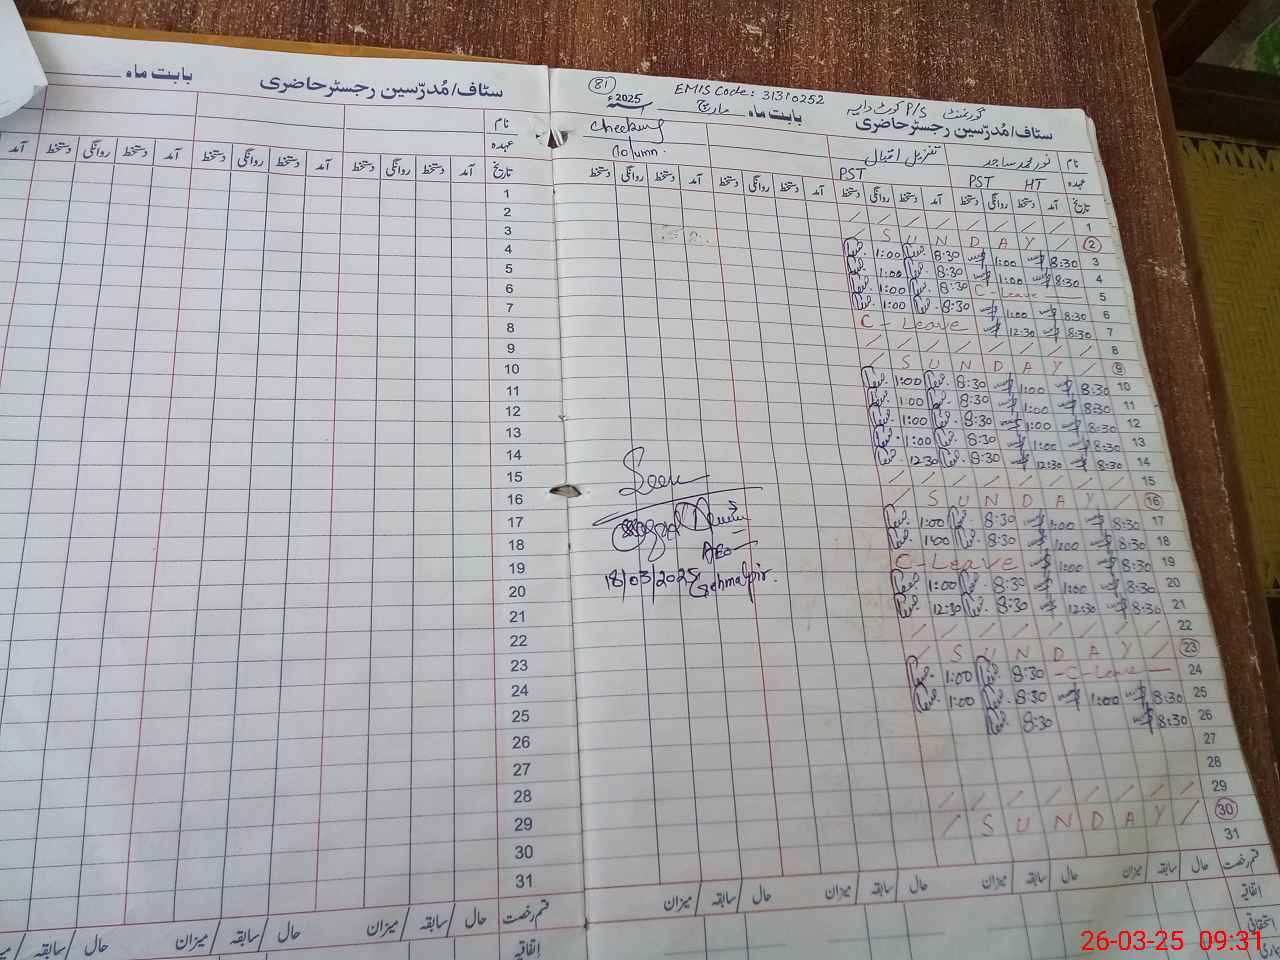 بابت ماہ
سٹاف/مُدرّسین رجسٹر حاضری
نام
عہدہ
تاریخ آمد دستخط روانگی دستخط آمد دستخط روانگی دستخط آمد
1
2
3
4
5
6
7
8
9
10
11
12
13
14
15
16
17
18
19
20
21
22
23
24
25
26
27
28
29
30
31
قسم رخصت حال / سابقہ / میزان حال / سابقہ / میزان حال
اتفاقیہ
81 EMIS Code: 31310252 گورنمنٹ P/S
سٹاف/مُدرّسین رجسٹر حاضری بابت ماہ مارچ 2025ء
نام نور محمد ساجد تنزیل اقبال Checking
عہدہ HT PST PST Column.
تاریخ آمد دستخط روانگی دستخط آمد دستخط روانگی دستخط آمد دستخط روانگی دستخط آمد دستخط روانگی دستخط
1
2 SUNDAY
3 8:30 1:00 8:30 1:00
4 8:30 1:00 8:30 1:00
5 C-Leave 8:30 1:00
6 8:30 1:00 8:30 1:00
7 8:30 12:30 C-Leave
8
9 SUNDAY
10 8:30 1:00 8:30 1:00
11 8:30 1:00 8:30 1:00
12 8:30 1:00 8:30 1:00
13 8:30 1:00 8:30 1:00
14 8:30 12:30 8:30 12:30
15
16 SUNDAY
17 8:30 1:00 8:30 1:00
18 8:30 1:00 8:30 1:00
19 8:30 1:00 C-Leave
20 8:30 1:00 8:30 1:00
21 8:30 12:30 8:30 12:30
22
23 SUNDAY
24 C-Leave 8:30 1:00
25 8:30 1:00 8:30 1:00
26 8:30 8:30
27
28
29
30 SUNDAY
31
Seen
AEO
18/03/2025
قسم رخصت حال / سابقہ / میزان حال / سابقہ / میزان حال / سابقہ / میزان حال / سابقہ / میزان
اتفاقیہ
استحقاقی
26-03-25 09:31